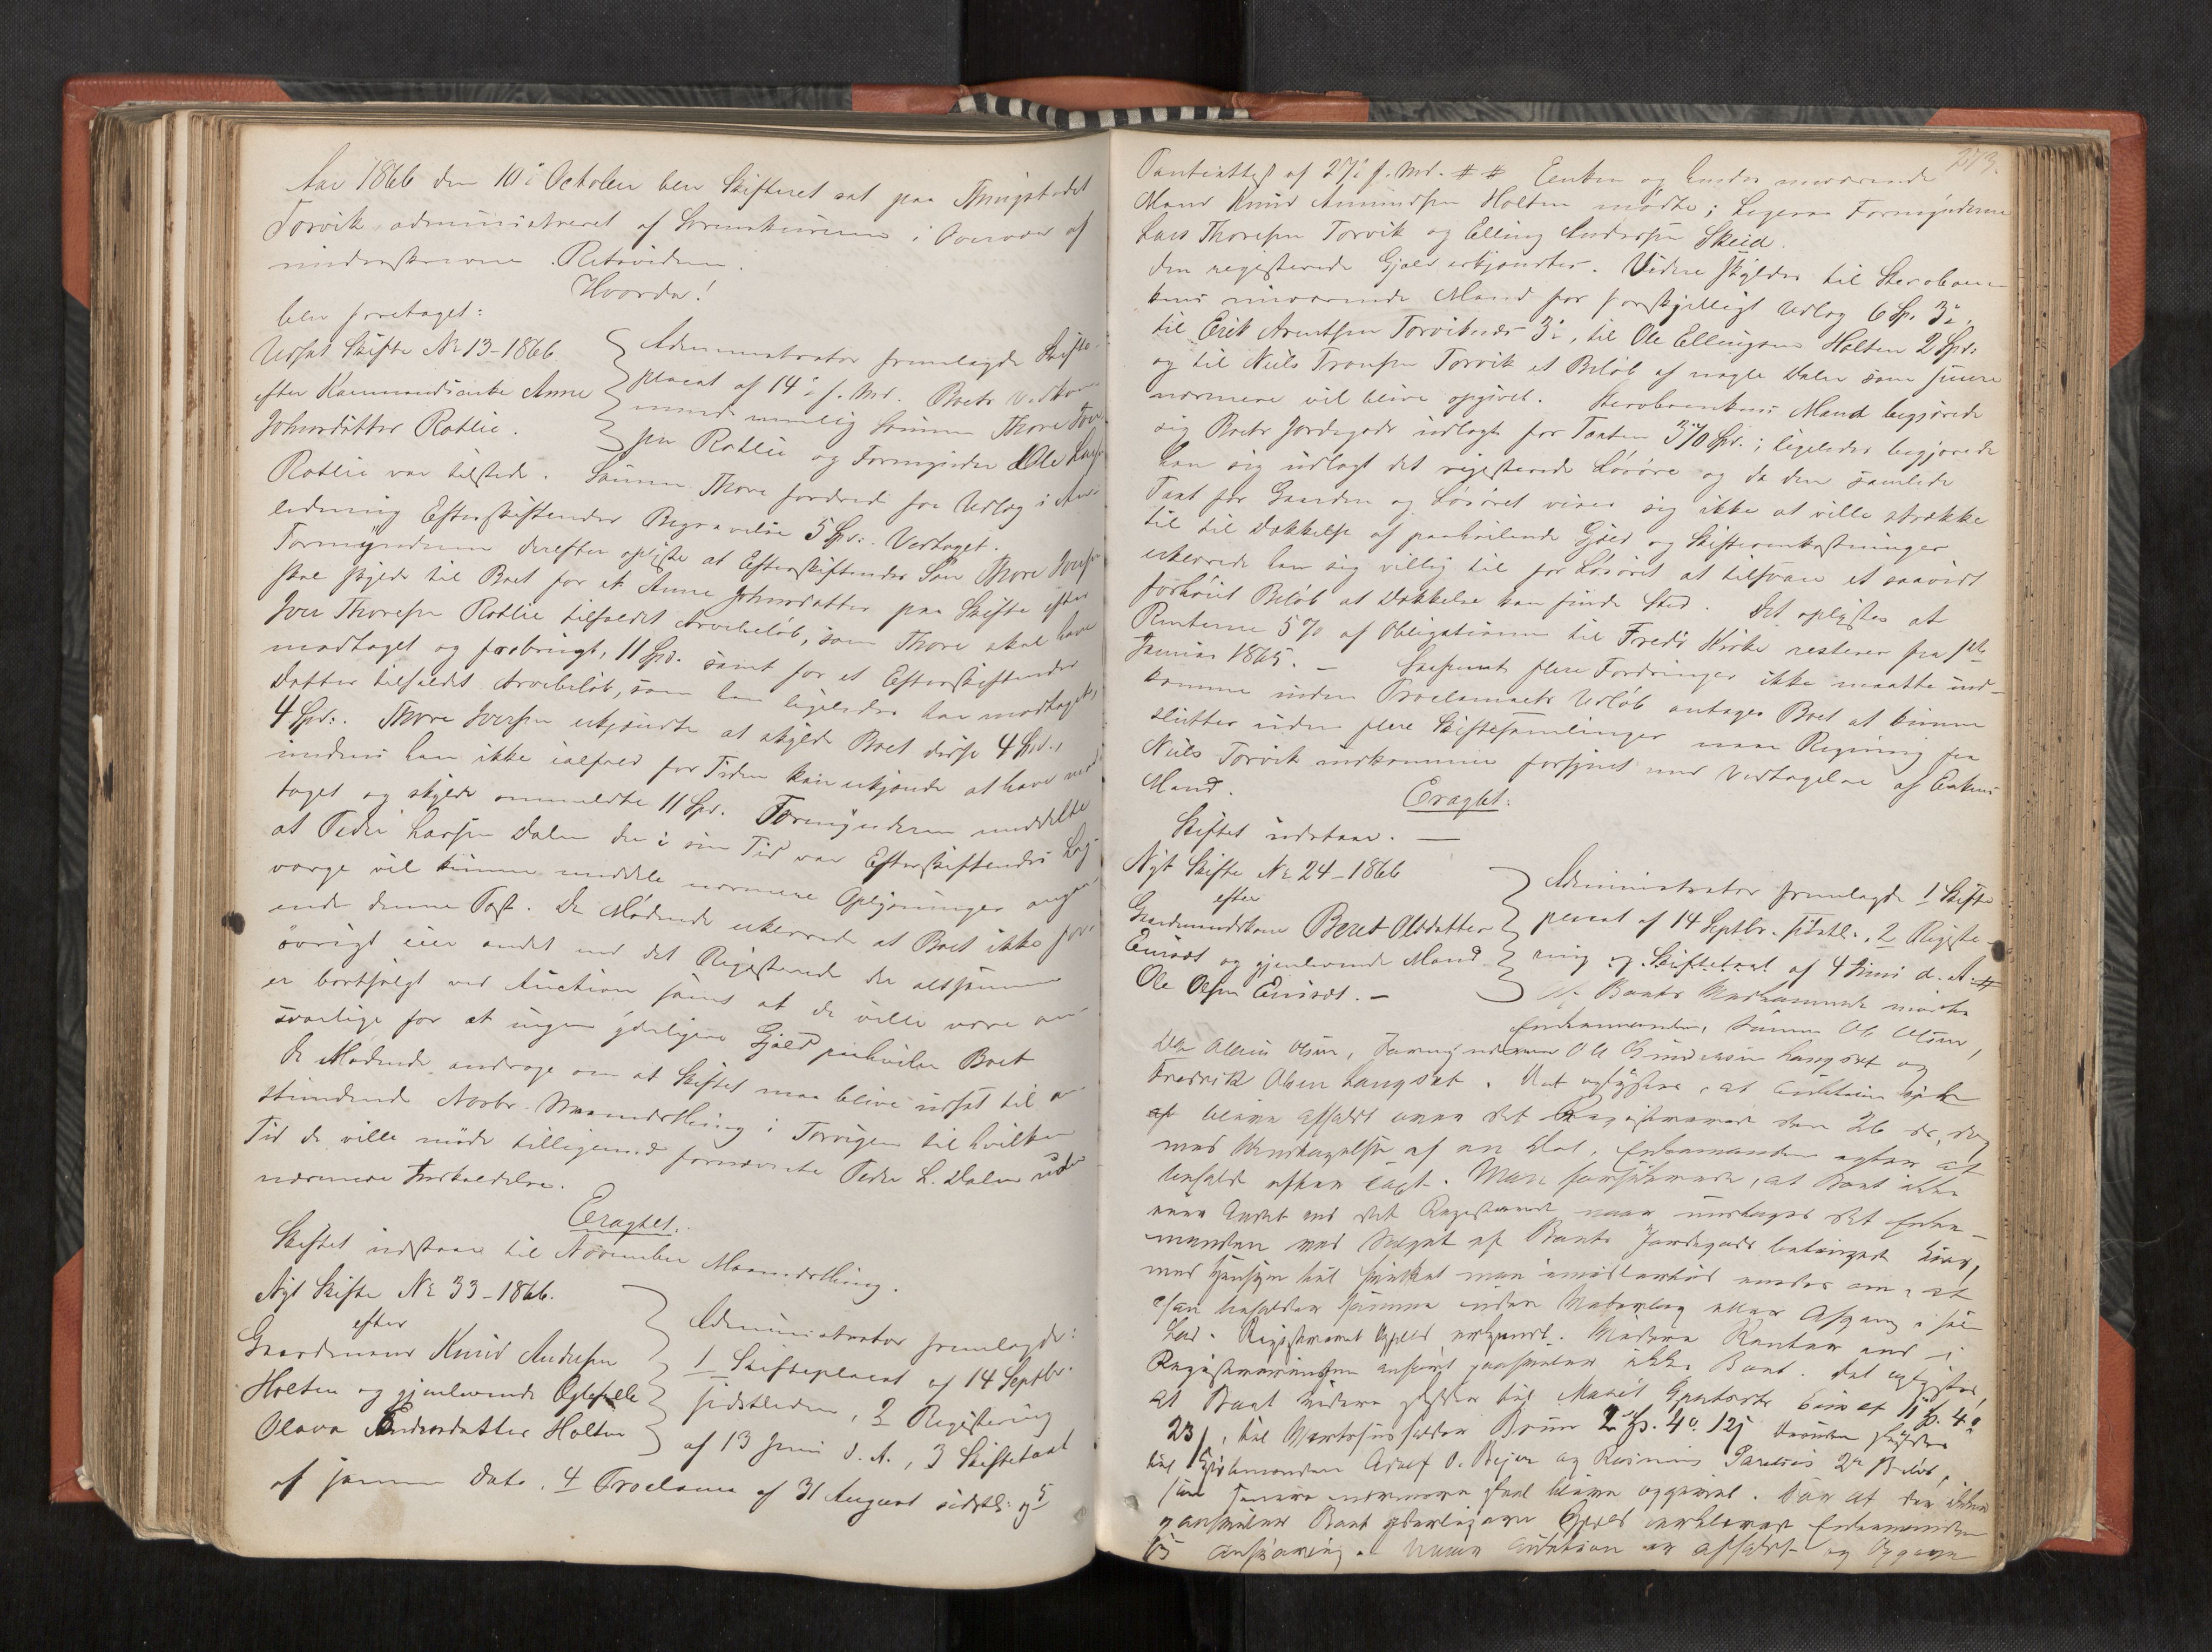 Aar 1866 den 10de October blev Skifteret sat paa Thingstedet
Torvik administreret af Sorenskriveren i Overvær af
underskrevne Retsvidner.
Hvorda!
blev foretaget:
Udsat Skifte No 13-1866.
efter Kaarmandsenke Anne
Johnsdatter Rødlie.
Administrator fremlagde Skifte-
placat af 14de f. Md. Boets Vedkom-
mende nemlig Sønnen Thore Iver-
sen Rødlie og Formynder Ole Lars
Rødlie var tilstede. Sønnen Thore fordrede for Udlæg i An-
ledning Efterskiftendes Begravelse 5 Spd. Vedtaget.
Formynderen derefter oplyste at Efterskiftendes Søn Thore Iversen
skal skylde til Boet for et Anne Johnsdatter paa Skifte efter
Iver Thoresen Rødlie tilfaldet Arvebeløb, som Thore skal have
modtaget og forbrugt, 11 Spd. samt for et Efterskiftendes
Datter tilfaldt Arvebeløb, som han ligeledes har modtaget,
4 Spd. Thore Iversen erkjendte at skylde Boet disse 4 Spd.,
imidens han ikke ialfald for Tiden kan erkjende at have mod-
taget og skylde ommeldte 11 Spd. Formynderen meddelte
at Peder Larsen Dalen der i sin Tid var Efterskiftendes Lag-
værge vil kunne meddele nærmere Oplysninger angaa-
ende denne Post. De Mødende erklærede at Boet ikke for-
øvrigt eier andet end det Registerede der altsammen
er bortsolgt ved Auction samt at de ville være an-
svarlige for at ingen yderligere Gjæld paahviler Boet
De Mødende androge om at Skiftet maa blive udsat til an-
stundende Novbr. Maanedsthing i Torvigen til hvilken
Tid de ville møde tilligemed fornævnte Peder L. Dalen uden
nærmere Indkaldelse.
Eragtet:
Skiftet udstaar til November Maanedsthing.
Nyt Skifte No 33-1866.
efter
Gaardmand Knud Andersen
Holten og gjenlevende Ægtefelle
Olava Andersdatter Holten
Administrator fremlagde:
1 Skifteplacat af 14 Septbr.
sidstleden, 2 Registering
af 13 Juni d. A., 3 Skiftetaxt
af samme Dato. 4 Proclama af 31 August sidstl. og 5
273.
Panteattest af 27de f. Md. # # Enken og hendes nuværende
Mand Knud Amundsen Holten mødte; ligesaa Formynderne
Lars Thoresen Torvik og Elling Andersen Skeid.
Den registerede Gjæld erkjendtes. Videre skyldes til Stervboen-
kens nuværende Mand for forskjelligt Udlæg 6 Sp. 3
til Erik Arentsen Torvikeids 3, til Ole Ellingsen Holten 2 Spd.
og til Niels Tronsen Torvik et Beløb af nogle Daler som senere
nærmere vil blive opgivet. Stervboenkens Mand begjærede
sig Boets Jordegods udlagt for Taxten 370 Spd.; ligeledes begjærede
han sig udlagt det registerede Løsøre og da den samlede
Taxt for Gaarden og Løsøret viser sig ikke at ville strække
til til Dækkelse af paahvilende Gjæld og Skifteomkostninger
erklærede han sig villig til for Løsøret at tilsvare et saavidt
forhøiet Beløb at Dækkelse kan finde Sted. Det oplystes at
Renterne 5 % af Obligationen til Fredø Kirke resterer fra 1ste
Januar 1865. - Saafremt flere Fordringer ikke maatte ind-
komme inden Proclamaets Udløb antages Boet at kunne
sluttes uden flere Skiftesamlinger naar Regning fra
Niels Torvik indkommer forsynet med Vedtagelse af Enkens
Mand.
Eragtet:
Skiftet udstaar. -
Nyt Skifte No 24-1866
efter
Gaardmandskone Beret Olsdatter
Eensæt og gjenlevende Mand
Ole Olsen Eensæt. -
Administrator fremlagde 1 Skifte-
placat af 14 Septbr. sidstl., 2 Registe-
ring og Skiftetaxt af 4 Juni d. A. #
Af Boets Vedkommende mødte
Enkemanden, Sønnen Ole Olsen,
Olsen, Formynderne Ole Gundersen Langset og
Fredrik Olsen Langset. Det oplystes, at Auktion
blive afholdt over det Registrerede den 26 ds.
med Undtagelse af en Del, Enkemanden agter at
beholde efter Taxt. Man forsikrede, at Boet ikke
eier Andet end det Registrerede naar undtages det Enke-
manden ved Salget af Boets Jordegods betingede
med Hensyn til hvilket man imidlertid enedes om, at
han beholder samme uden Vederlag eller Afgang i sin
Lod. Registreret Gjæld erkjendt. Videre Renter end i
Registreringen anført paahviler ikke Boet. Det oplystes,
at Boet videre skylder til Marit 11 Sp. 4
23, til Brun 2 Sp. 4 12 desuden skyldes
til Adolf O. Bejer og 2de Beløb,
som senere nærmere skal blive opgivet. For at der ikke
paahviler Boet yderligere Gjæld erklærede Enkemanden
Ansvarlig. Naar Auktion er afholdt og Opgave